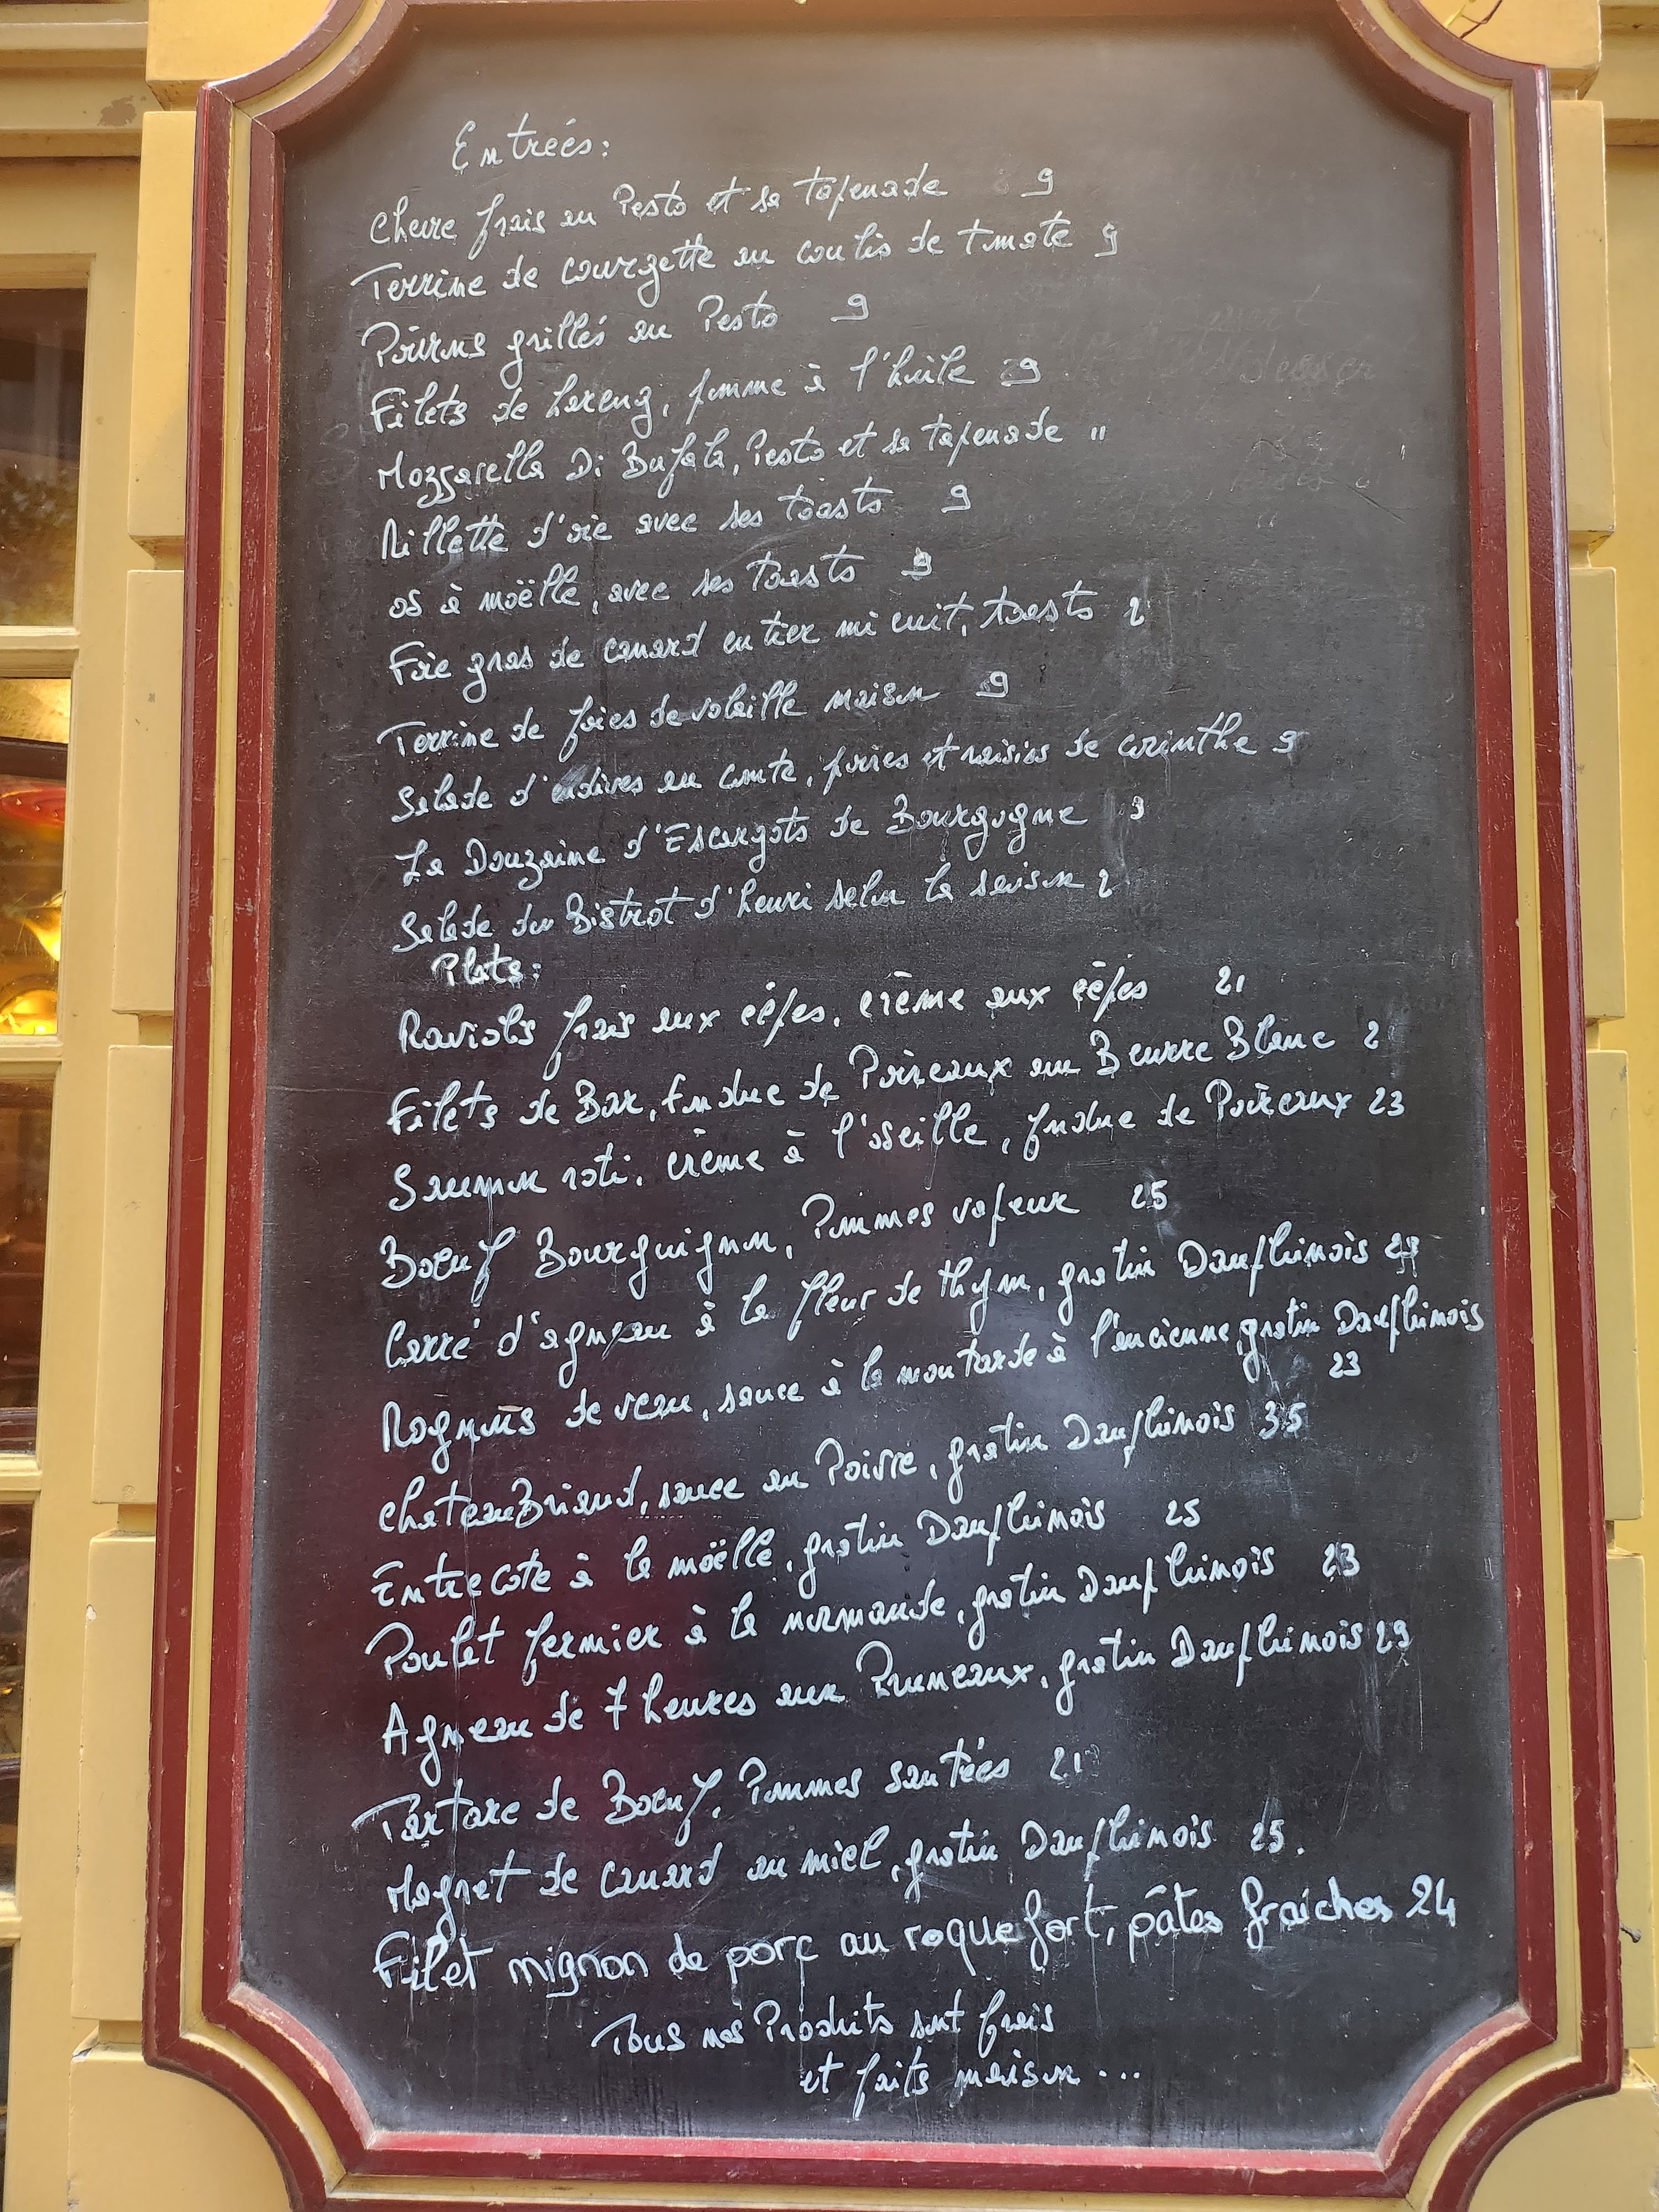 Entrées:
Chevre frais au Pesto et sa tapenade 9
Terrine de courgette au coulis de tomate 9
Poivrons grillés au Pesto 9
Filets de hareng, pomme à l'huile 9
Mozzarella Di Bufala, Pesto et sa tapenade 11
Rillette d'oie avec ses toasts 9
os à moëlle, avec ses toasts 9
Foie gras de canard entier mi cuit, toasts
Terrine de foies de volaille maison 9
Salade d'endives au comte, poires et raisins de corinthe 9
La Douzaine d'Escargots de Bourgogne
Salade du Bistrot d'henri selon la saison
Plats:
Raviolis frais aux cèpes, crème aux cèpes 21
Filets de Bar, fondue de Poireaux au Beurre Blanc
Saumon roti, crème à l'oseille, fondue de Poireaux 23
Boeuf Bourguignon, Pommes vapeur 25
Carré d'agneau à la fleur de thym, gratin Dauphinois
Rognons de veau, sauce à la moutarde à l'ancienne, gratin Dauphinois
23
ChateauBriand, sauce au Poivre, gratin Dauphinois 35
Entrecote à la moëlle, gratin Dauphinois 25
Poulet fermier à la normande, gratin Dauphinois 23
Agneau de 7 heures aux Pruneaux, gratin Dauphinois 29
Tartare de Boeuf, Pommes sautées 21
Magret de canard au miel, gratin Dauphinois 25.
Filet mignon de porc au roquefort, pâtes fraiches 24
Tous nos Produits sont frais
et faits maison...